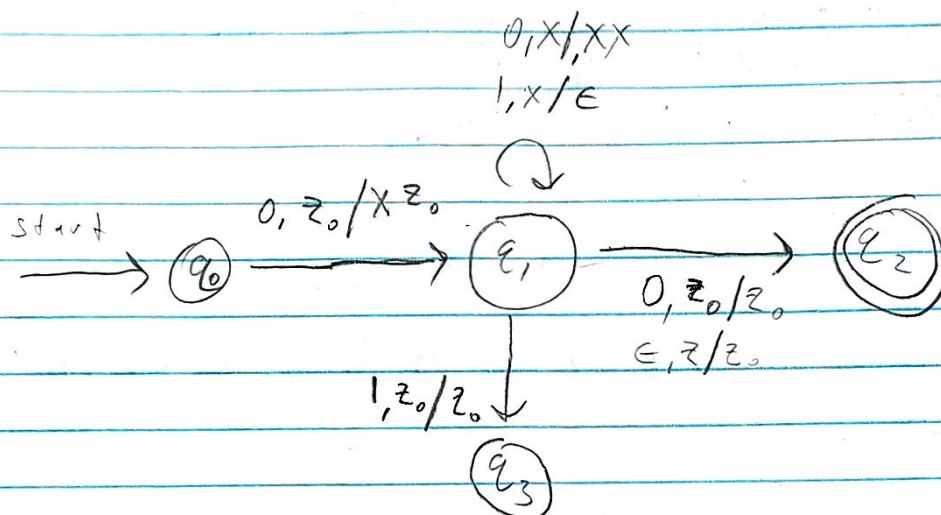 0, X/, XX
1, X/ε
start
0, z₀/X z₀
q₀
q₁
q₂
0, z₀/z₀
ε, z/z₀
1, z₀/z₀
q₃